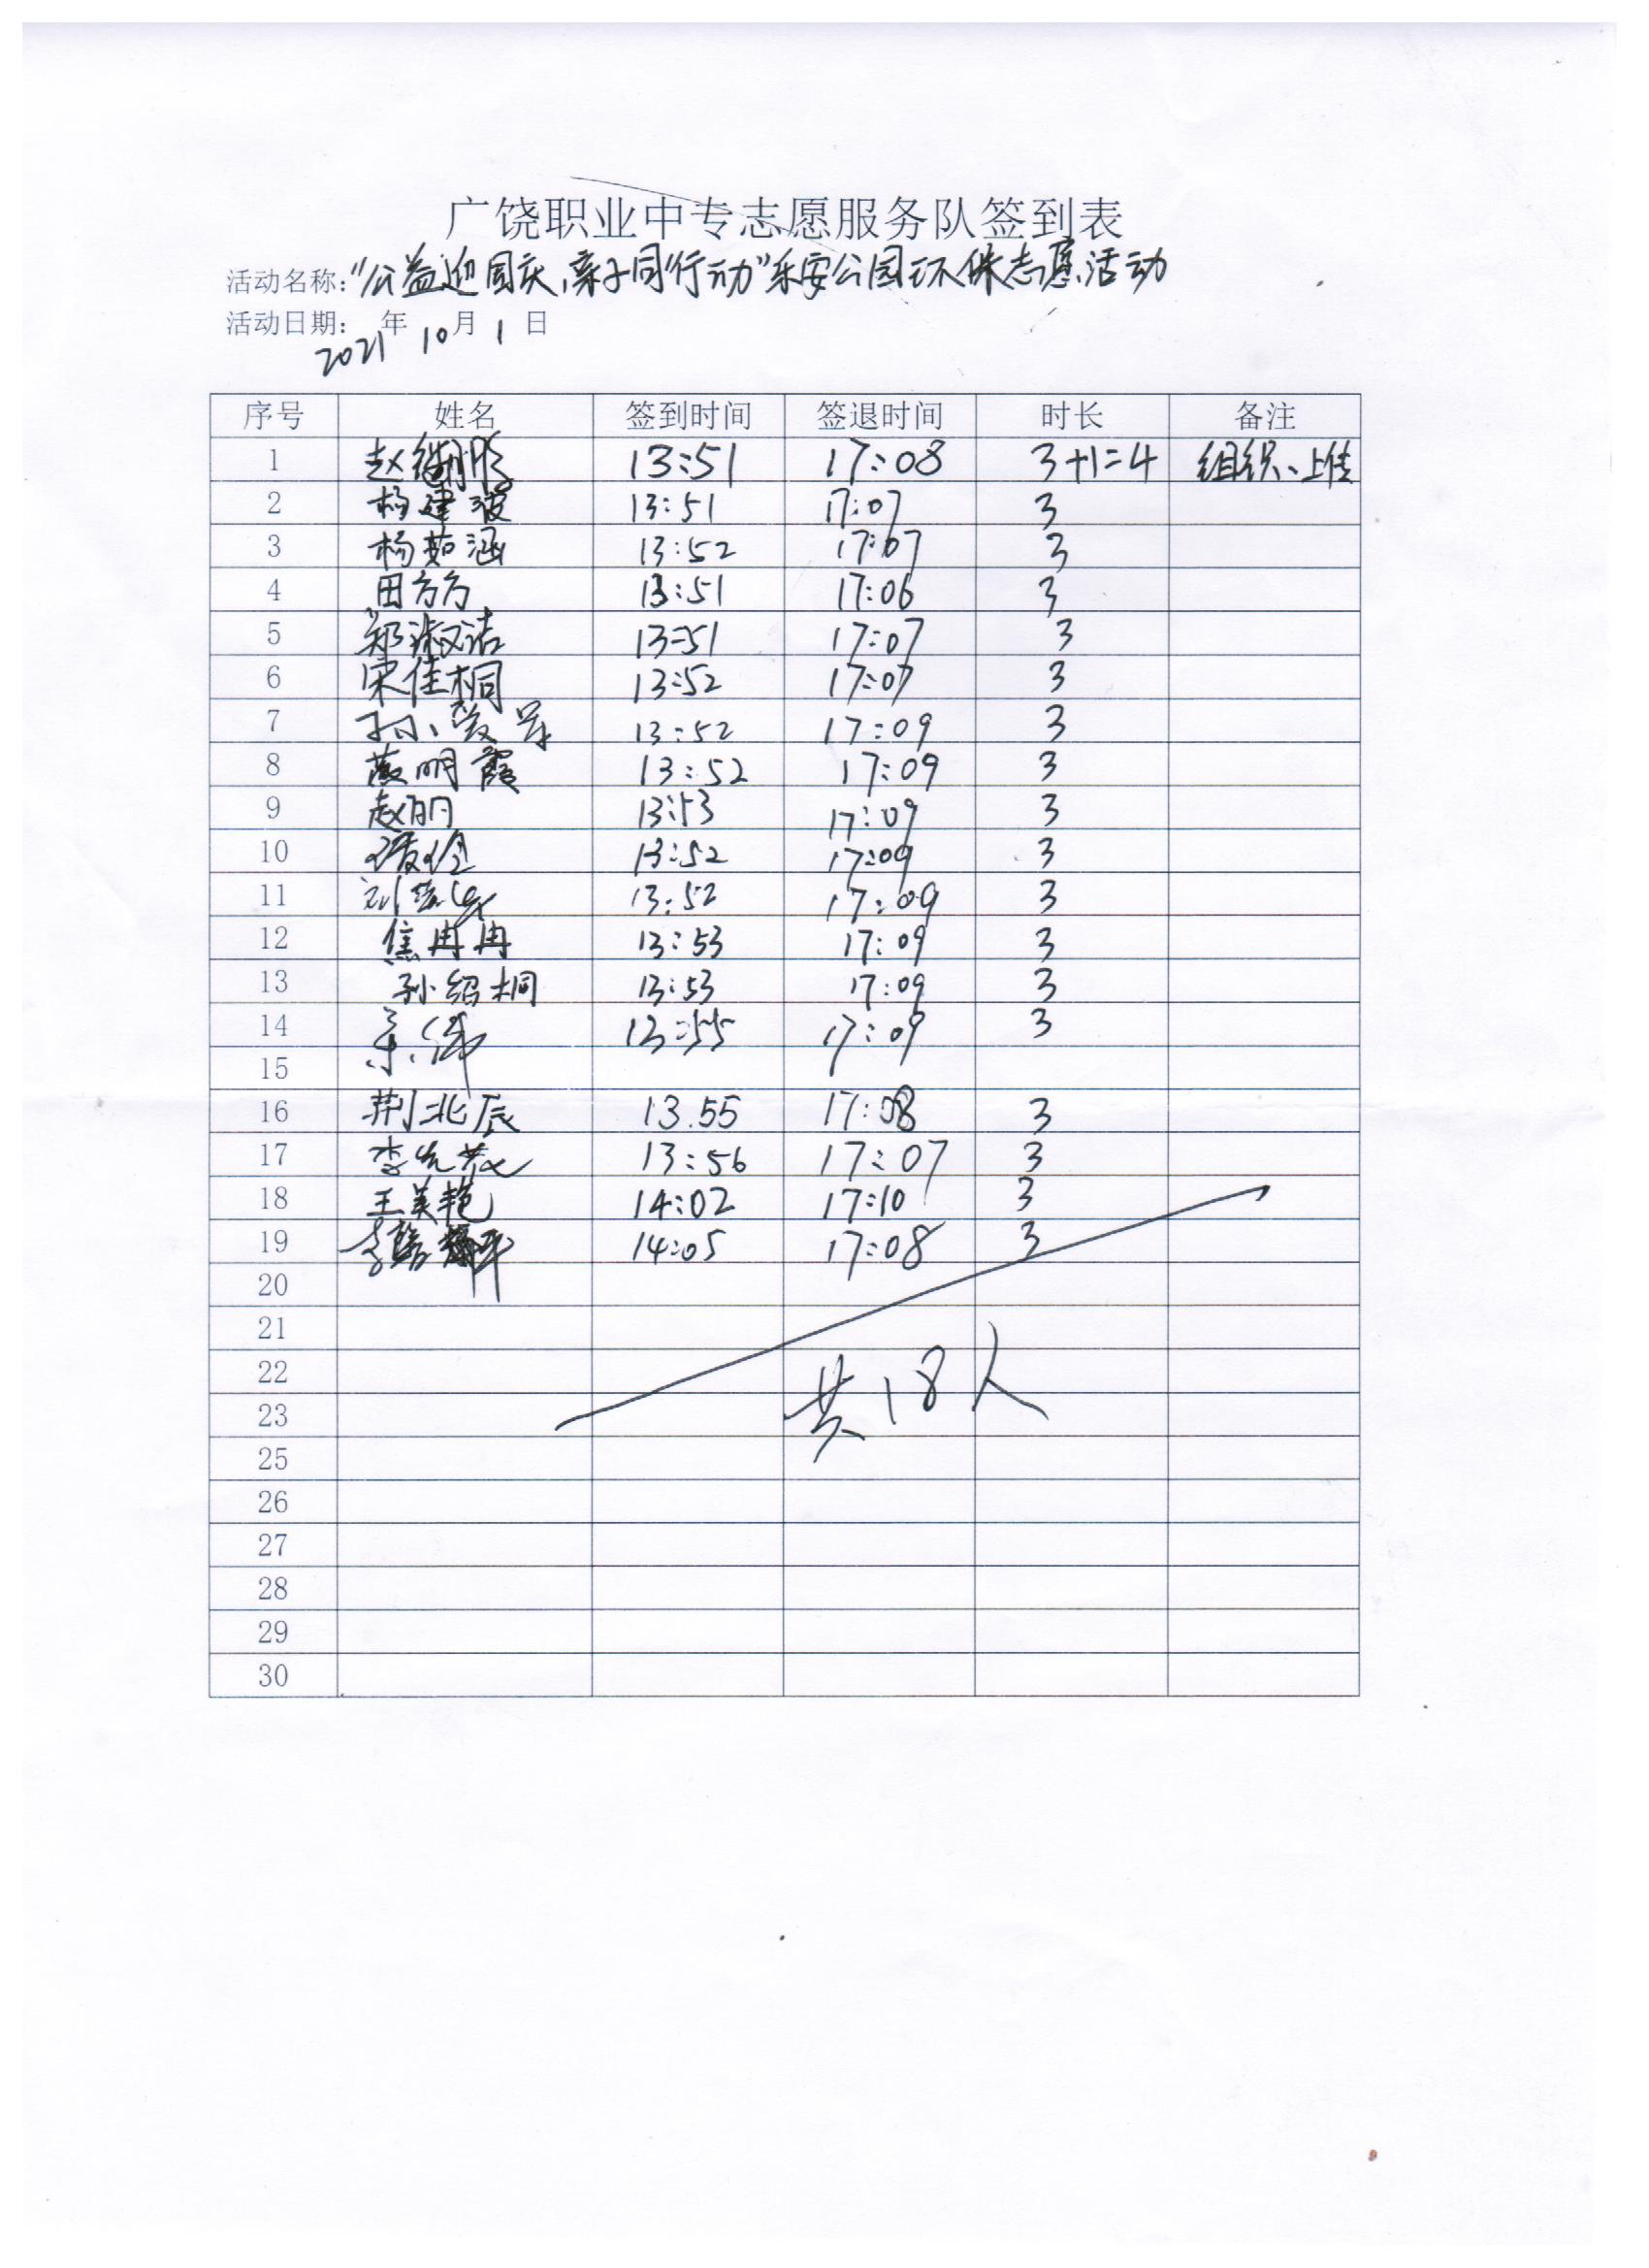 广饶职业中专志愿服务队签到表
活动名称:“公益迎国庆,亲子同行动”乐安公园环保志愿活动
活动日期: 2021年10月1日
序号 姓名 签到时间 签退时间 时长 备注
1 赵 13:51 17:08 3+1=4 组织、上传
2 杨建波 13:51 17:07 3
3 杨茹涵 13:52 17:07 3
4 田方方 13:51 17:06 3
5 郑淑洁 13:51 17:07 3
6 宋佳桐 13:52 17:07 3
7 13:52 17:09 3
8 燕明霞 13:52 17:09 3
9 赵丽 13:53 17:09 3
10 13:52 17:09 3
11 刘 13:52 17:09 3
12 焦冉冉 13:53 17:09 3
13 孙绍桐 13:53 17:09 3
14 13:55 17:09 3
15
16 荆北辰 13.55 17:08 3
17 李 13:56 17:07 3
18 王美艳 14:02 17:10 3
19 李 14:05 17:08 3
20
21
22
共18人
23
25
26
27
28
29
30